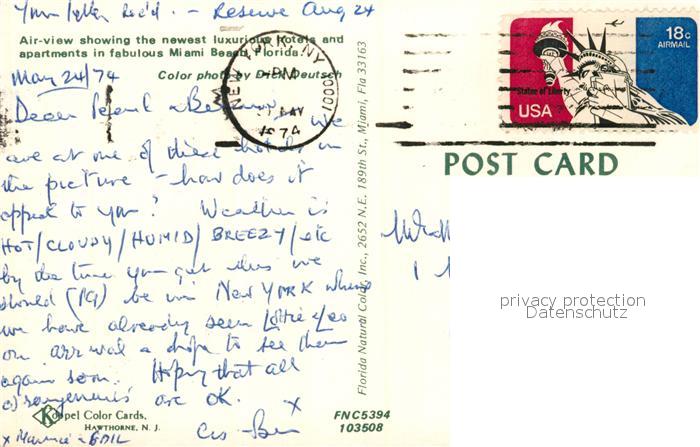 Your letter Rec'd. – Reserve Aug 24
Air-view showing the newest luxurious hotels and
apartments in fabulous Miami Beach, Florida.
May 24/74
Color photo by Deutsch
Dear Pearl & we
are at one of these hotels in
the picture – how does it
appeal to you? Weather is
HOT/CLOUDY/HUMID/BREEZY/etc
by the time you get this we
should (PG) be in NEW YORK where
we have already seen Lottie & Leo
on arrival & hope to see them
again soon. Hoping that all
arrangements are OK.
x
Koppel Color Cards,
HAWTHORNE, N. J.
FNC5394
103508
x Maurice
Cis Ben
Florida Natural Color, Inc., 2652 N.E. 189th St., Miami, Fla 33163
NEW YORK, NY
PM
MAY
1974
10001
18c
AIRMAIL
Statue of Liberty
USA
POST CARD
privacy protection
Datenschutz